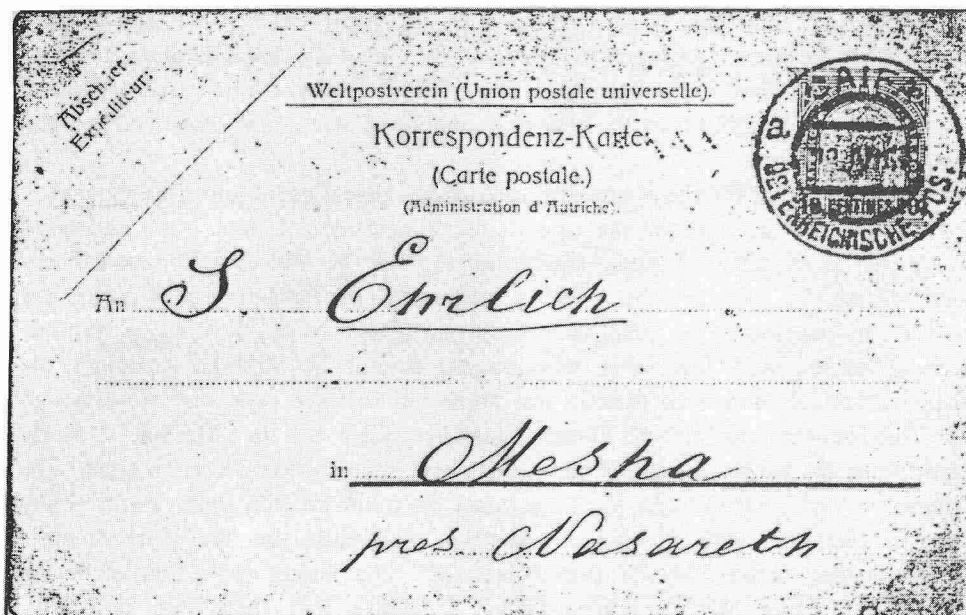 Absender:
Expéditeur:
Weltpostverein (Union postale universelle).
Korrespondenz-Karte.
(Carte postale.)
(Administration d'Autriche).
CAIFA
a
10 CENTIMES 10
OESTERREICHISCHE POST
An S Ehrlich
in Mesha
pres Nasareth